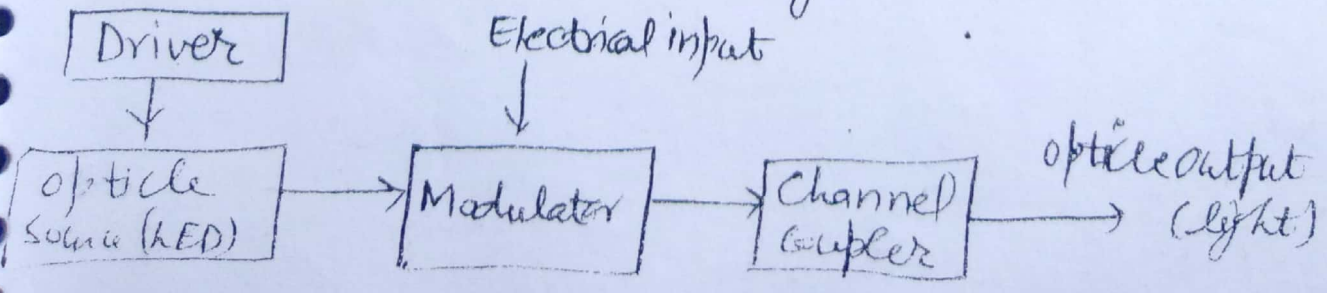 Driver
Electrical input
opticle
Source (LED)
Modulator
Channel
Coupler
opticle output
(light)